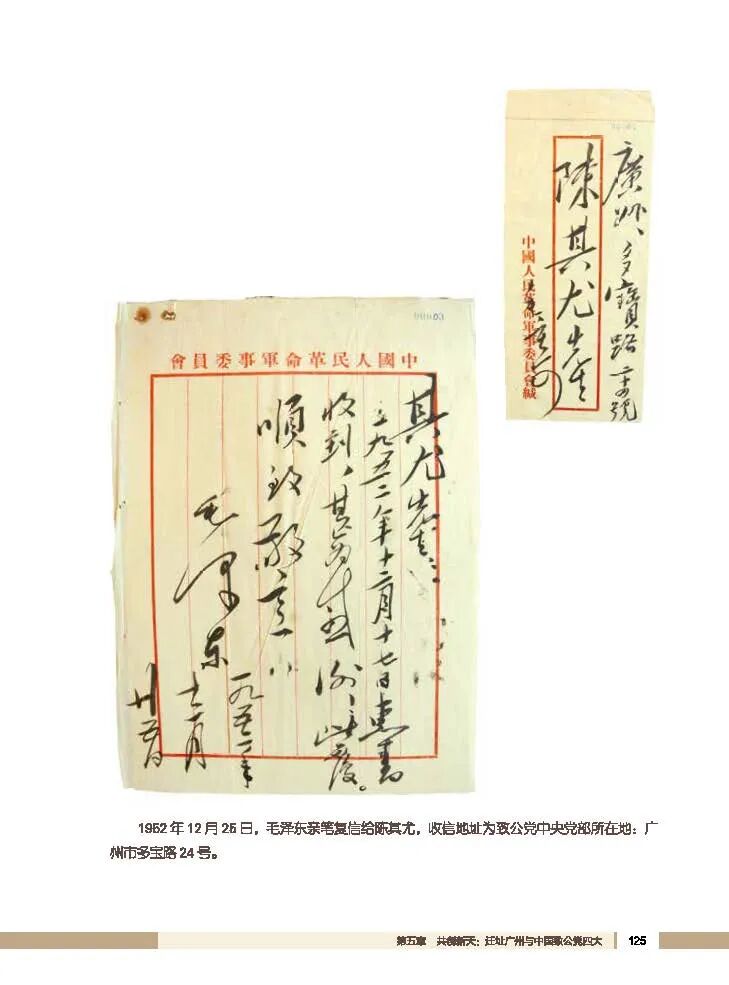 廣州、多寶路二十四號
陳其尤先生
中國人民革命軍事委員會緘
00003
中國人民革命軍事委員會
其尤先生：
一九五二年十二月十七日惠書
收到，甚为感谢，此覆。
順致敬意！
毛澤东
一九五二年
十二月
廿五日
1952 年 12 月 25 日，毛泽东亲笔复信给陈其尤，收信地址为致公党中央党部所在地：广
州市多宝路 24 号。
第五章 共创新天：迁址广州与中国致公党四大 125